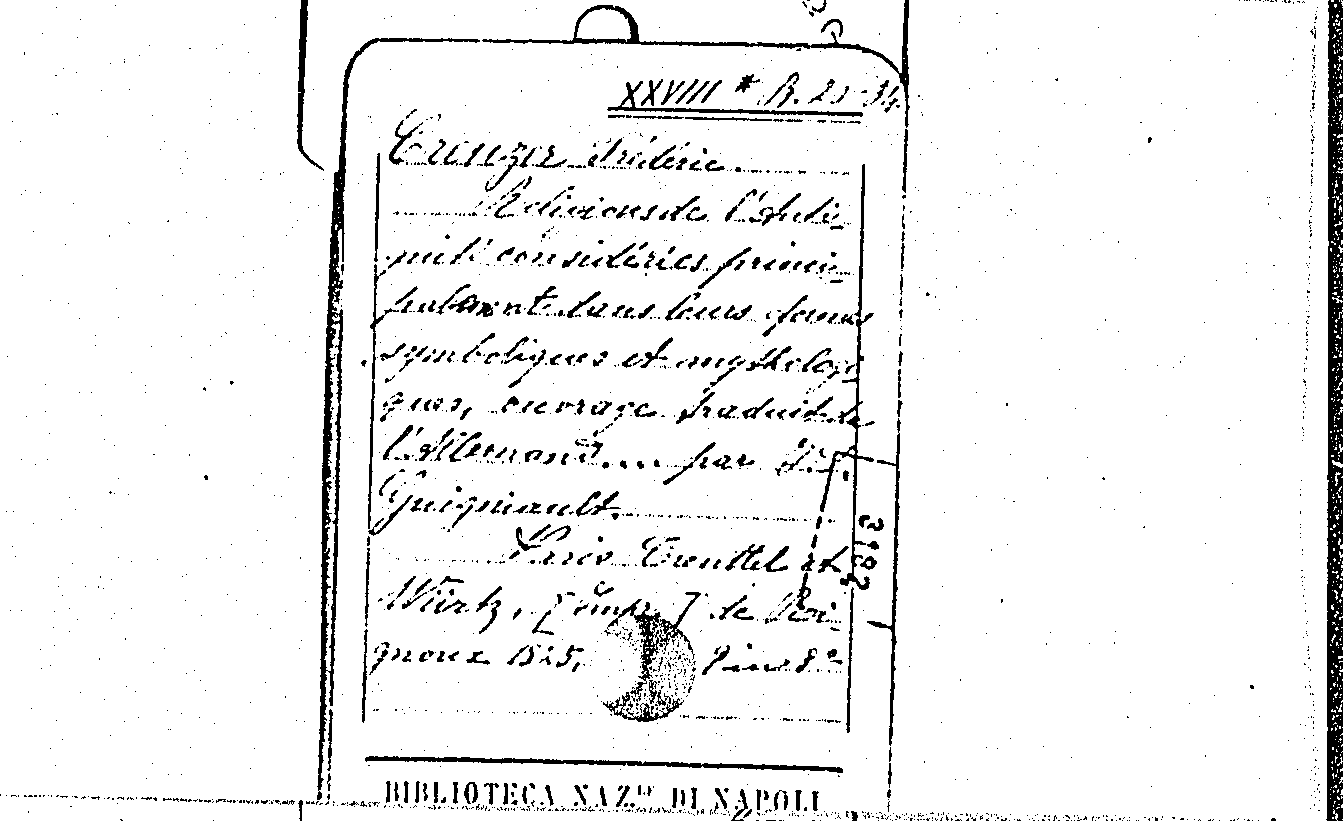 XXVIII * B. 25-34
Creuzer Frédéric.
Religions de l'Anti-
quité considérées princi-
palement dans leurs formes
symboliques et mythologi-
ques, ouvrage traduit de
l'Allemand.... par
Guigniault.
Paris Treuttel et
Würtz, [impr.] de Poi-
gnoux 1825, in 8°
BIBLIOTECA NAZ.LE DI NAPOLI